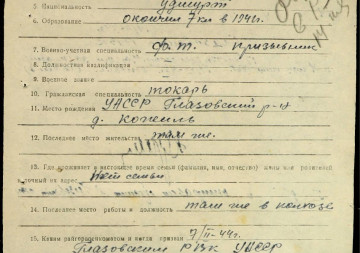 5. Национальность удмурт
6. Образование окончил 7 кл в 1940 г.
7. Военно-учетная специальность призывник
8. Должностная квалификация
9. Военное звание
10. Гражданская специальность токарь
11. Место рождения УАССР Глазовский р-н
д.
12. Последнее место жительства там же.
13. Где проживает в настоящее время семья (фамилия, имя, отчество) жены или родителей
и точный их адрес Нет семьи
14. Последнее место работы и должность там же в колхозе
15. Каким райгорвоенкоматом и когда призван 7/II-44г.
Глазовским РВК УАССР